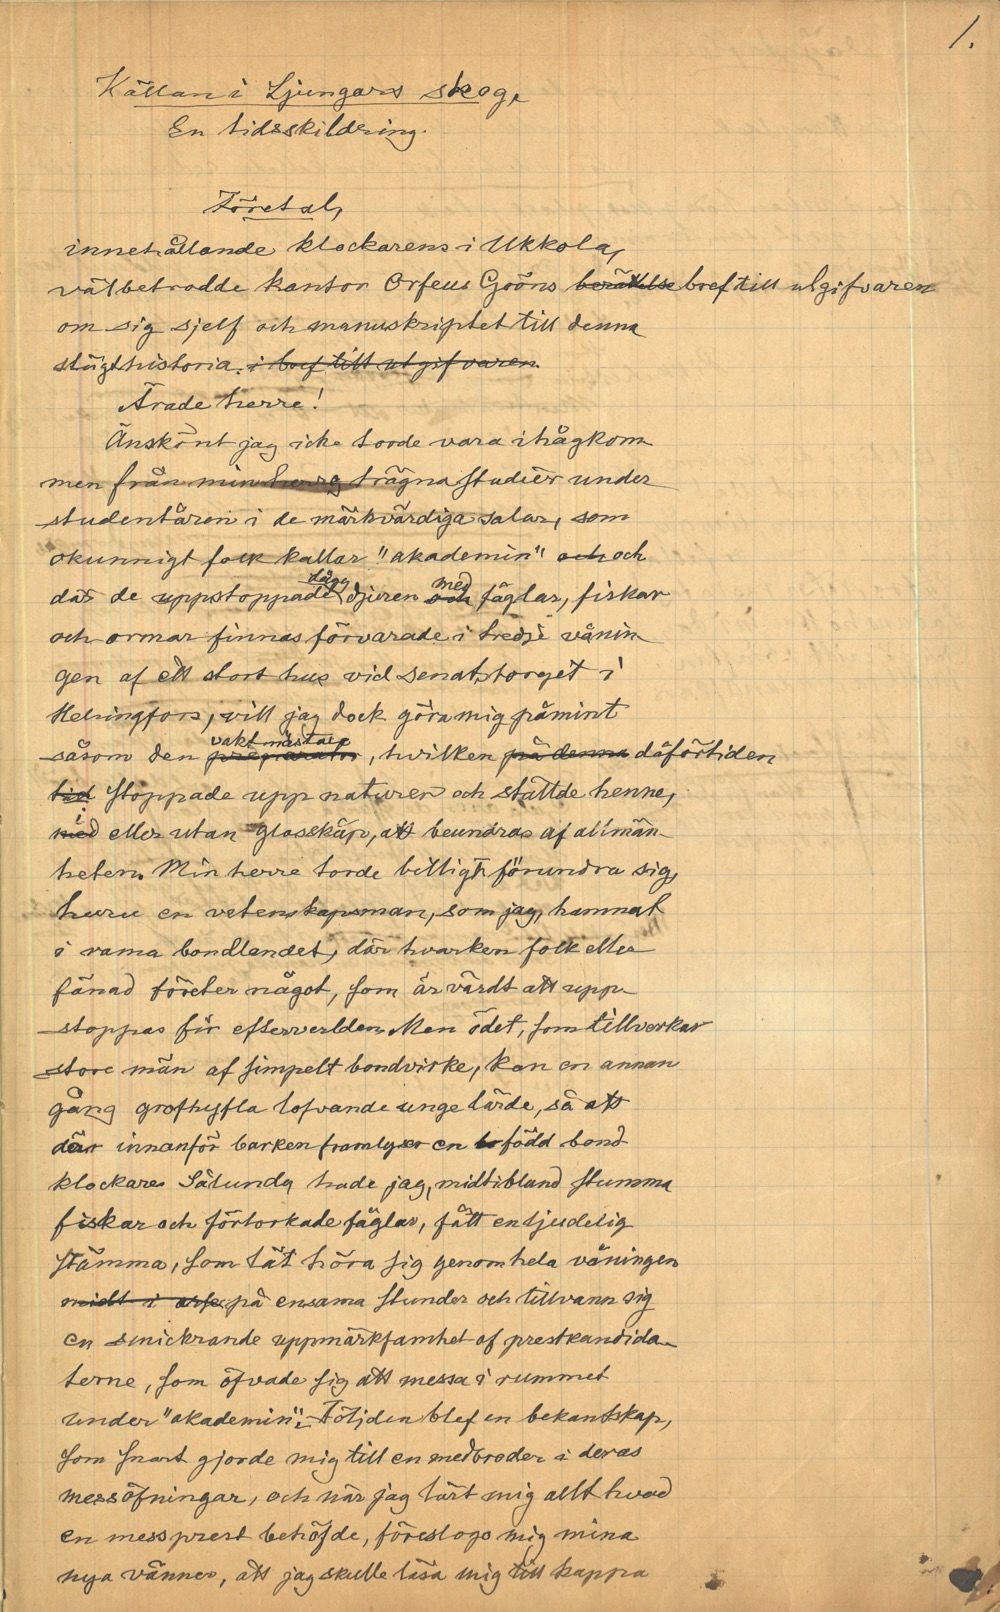 1.
Källan i Ljungars skog.
En tidsskildring.
Företal,
innehållande klockarens i Ukkola,
välbetrodde kantor Orfeus Gröns berättelse bref till utgifvaren
om sig sjelf och manuskriptet till denna
slägthistoria. i bref till utgifvaren.
Ärade herre!
Änskönt jag icke torde vara ihågkom-
men från min trägna studier under
studentåren i de märkvärdiga salar, som
okunnigt folk kallar "akademin" och och
där de uppstoppade djuren och med fåglar, fiskar
och ormar finnas förvarade i tredje vånin-
gen af ett stort hus vid senatstorget i
Helsingfors, vill jag dock göra mig påmint
såsom den preparator vaktmästare, hvilken på denna däförtiden
tid stoppade upp naturen och ställde henne,
med i eller utan glasskåp, att beundras af allmän-
heten. Min herre torde billigt förundra sig,
huru en vetenskapsman, som jag, hamnat
i rama bondlandet, där hvarken folk eller
fänad företer något, som är värdt att upp-
stoppas för efterverlden. Men ödet, som tillverkar
store män af simpelt bondvirke, kan en annan
gång grofhyfla lofvande unge lärde, så att
där innanför barken framlyser en född bond-
klockare. Sålunda hade jag, midtibland stumma
fiskar och förtorkade fåglar, fått en ljudelig
stämma, som lät höra sig genom hela våningen
midt i på ensama stunder och tillvann sig
en smickrande uppmärksamhet af prestkandida-
terne, som öfvade sig att messa i rummet
under "akademin". Följden blef en bekantskap,
som snart gjorde mig till en medbroder i deras
messöfningar, och när jag lärt mig allt hvad
en messprest behöfde, föreslogo mig mina
nya vänner, att jag skulle läsa mig till kappa